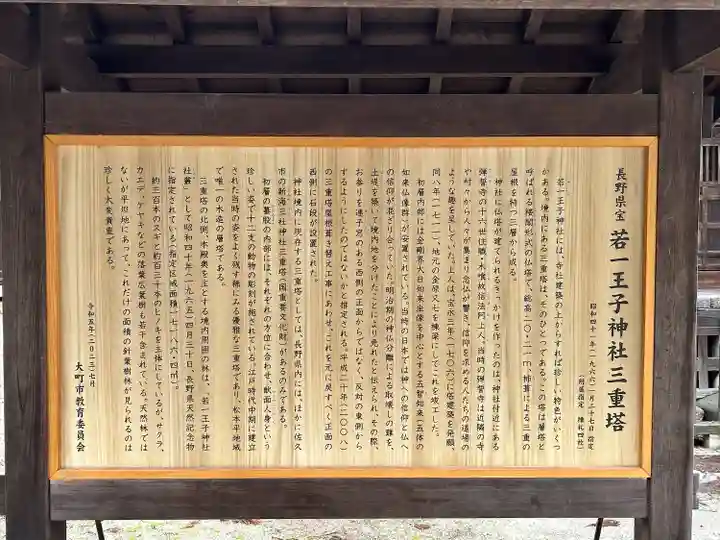 長野県宝 若一王子神社三重塔
昭和四十一年(一九六六)一月二十七日指定
(附指定 棟札四枚)
若一王子神社には、寺社建築の上からすれば珍しい特色がいくつ
かある。境内にある三重塔は、そのひとつである。この塔は層塔と
呼ばれる楼閣形式の仏塔で、総高二〇・二一m、杮葺による三重の
屋根を持つ三層から成る。
神社に仏塔が建てられるきっかけを作ったのは、神社付近にある
弾誓寺の十六世住職・木喰故信法阿上人。当時の弾誓寺は近隣の寺
や村々から人々が集まり念仏が響き、信仰を求める人たちの道場の
ような趣を呈していた。上人は、宝永三年(一七〇六)に塔建築を発願、
同八年(一七一一)、地元の金原又七を棟梁としてこれを竣工した。
初層内部には金剛界大日如来坐像を中心とする五智如来(五体の
如来仏像群)が安置されている。当時の日本では神への信仰と仏へ
の信仰が混ざり合っていた。明治期の神仏分離による取壊しの難を、
土堤を築いて境内地を分けたことにより免れたと伝えられ、その際、
お参りを連子窓のある西側の正面からではなく、反対の東側から
するようにしたのではないかと推定される。平成二十年(二〇〇八)
の三重塔屋根葺き替え工事にあわせ、これを元に戻すべく正面の
西側に石段が設置された。
神社境内に現存する三重塔としては、長野県内には、ほかに佐久
市の新海三社神社三重塔(国重要文化財)があるのみである。
初層の蟇股の内部には、それぞれの方位に合わせ、獣面人身という
珍しい姿で十二支の動物の彫刻が施されている。江戸時代中期に建立
された当時の姿をよく残す稀にみる優雅な三重塔であり、松本平地域
で唯一の木造の層塔である。
三重塔の北側、本殿奥を主とする境内周囲の林は、「若一王子神社
社叢」として昭和四十年(一九六五)四月三十日、長野県天然記念物
に指定されている(指定区域面積一七一八六・四㎡)。
約三百本のスギと約百三十本のヒノキを主体にしているが、サクラ、
カエデ、ケヤキなどの落葉広葉樹も若干含まれている。天然林では
ないが平坦地にあって、これだけの面積の針葉樹林が見られるのは
珍しく大変貴重である。
令和五年(二〇二三)七月
大町市教育委員会